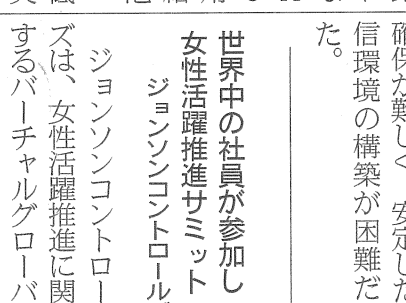 確保が難しく、安定した
信環境の構築が困難だ
た。
世界中の社員が参加し
女性活躍推進サミット
ジョンソンコントロール
ジョンソンコントロー
ズは、女性活躍推進に関
するバーチャルグローバ